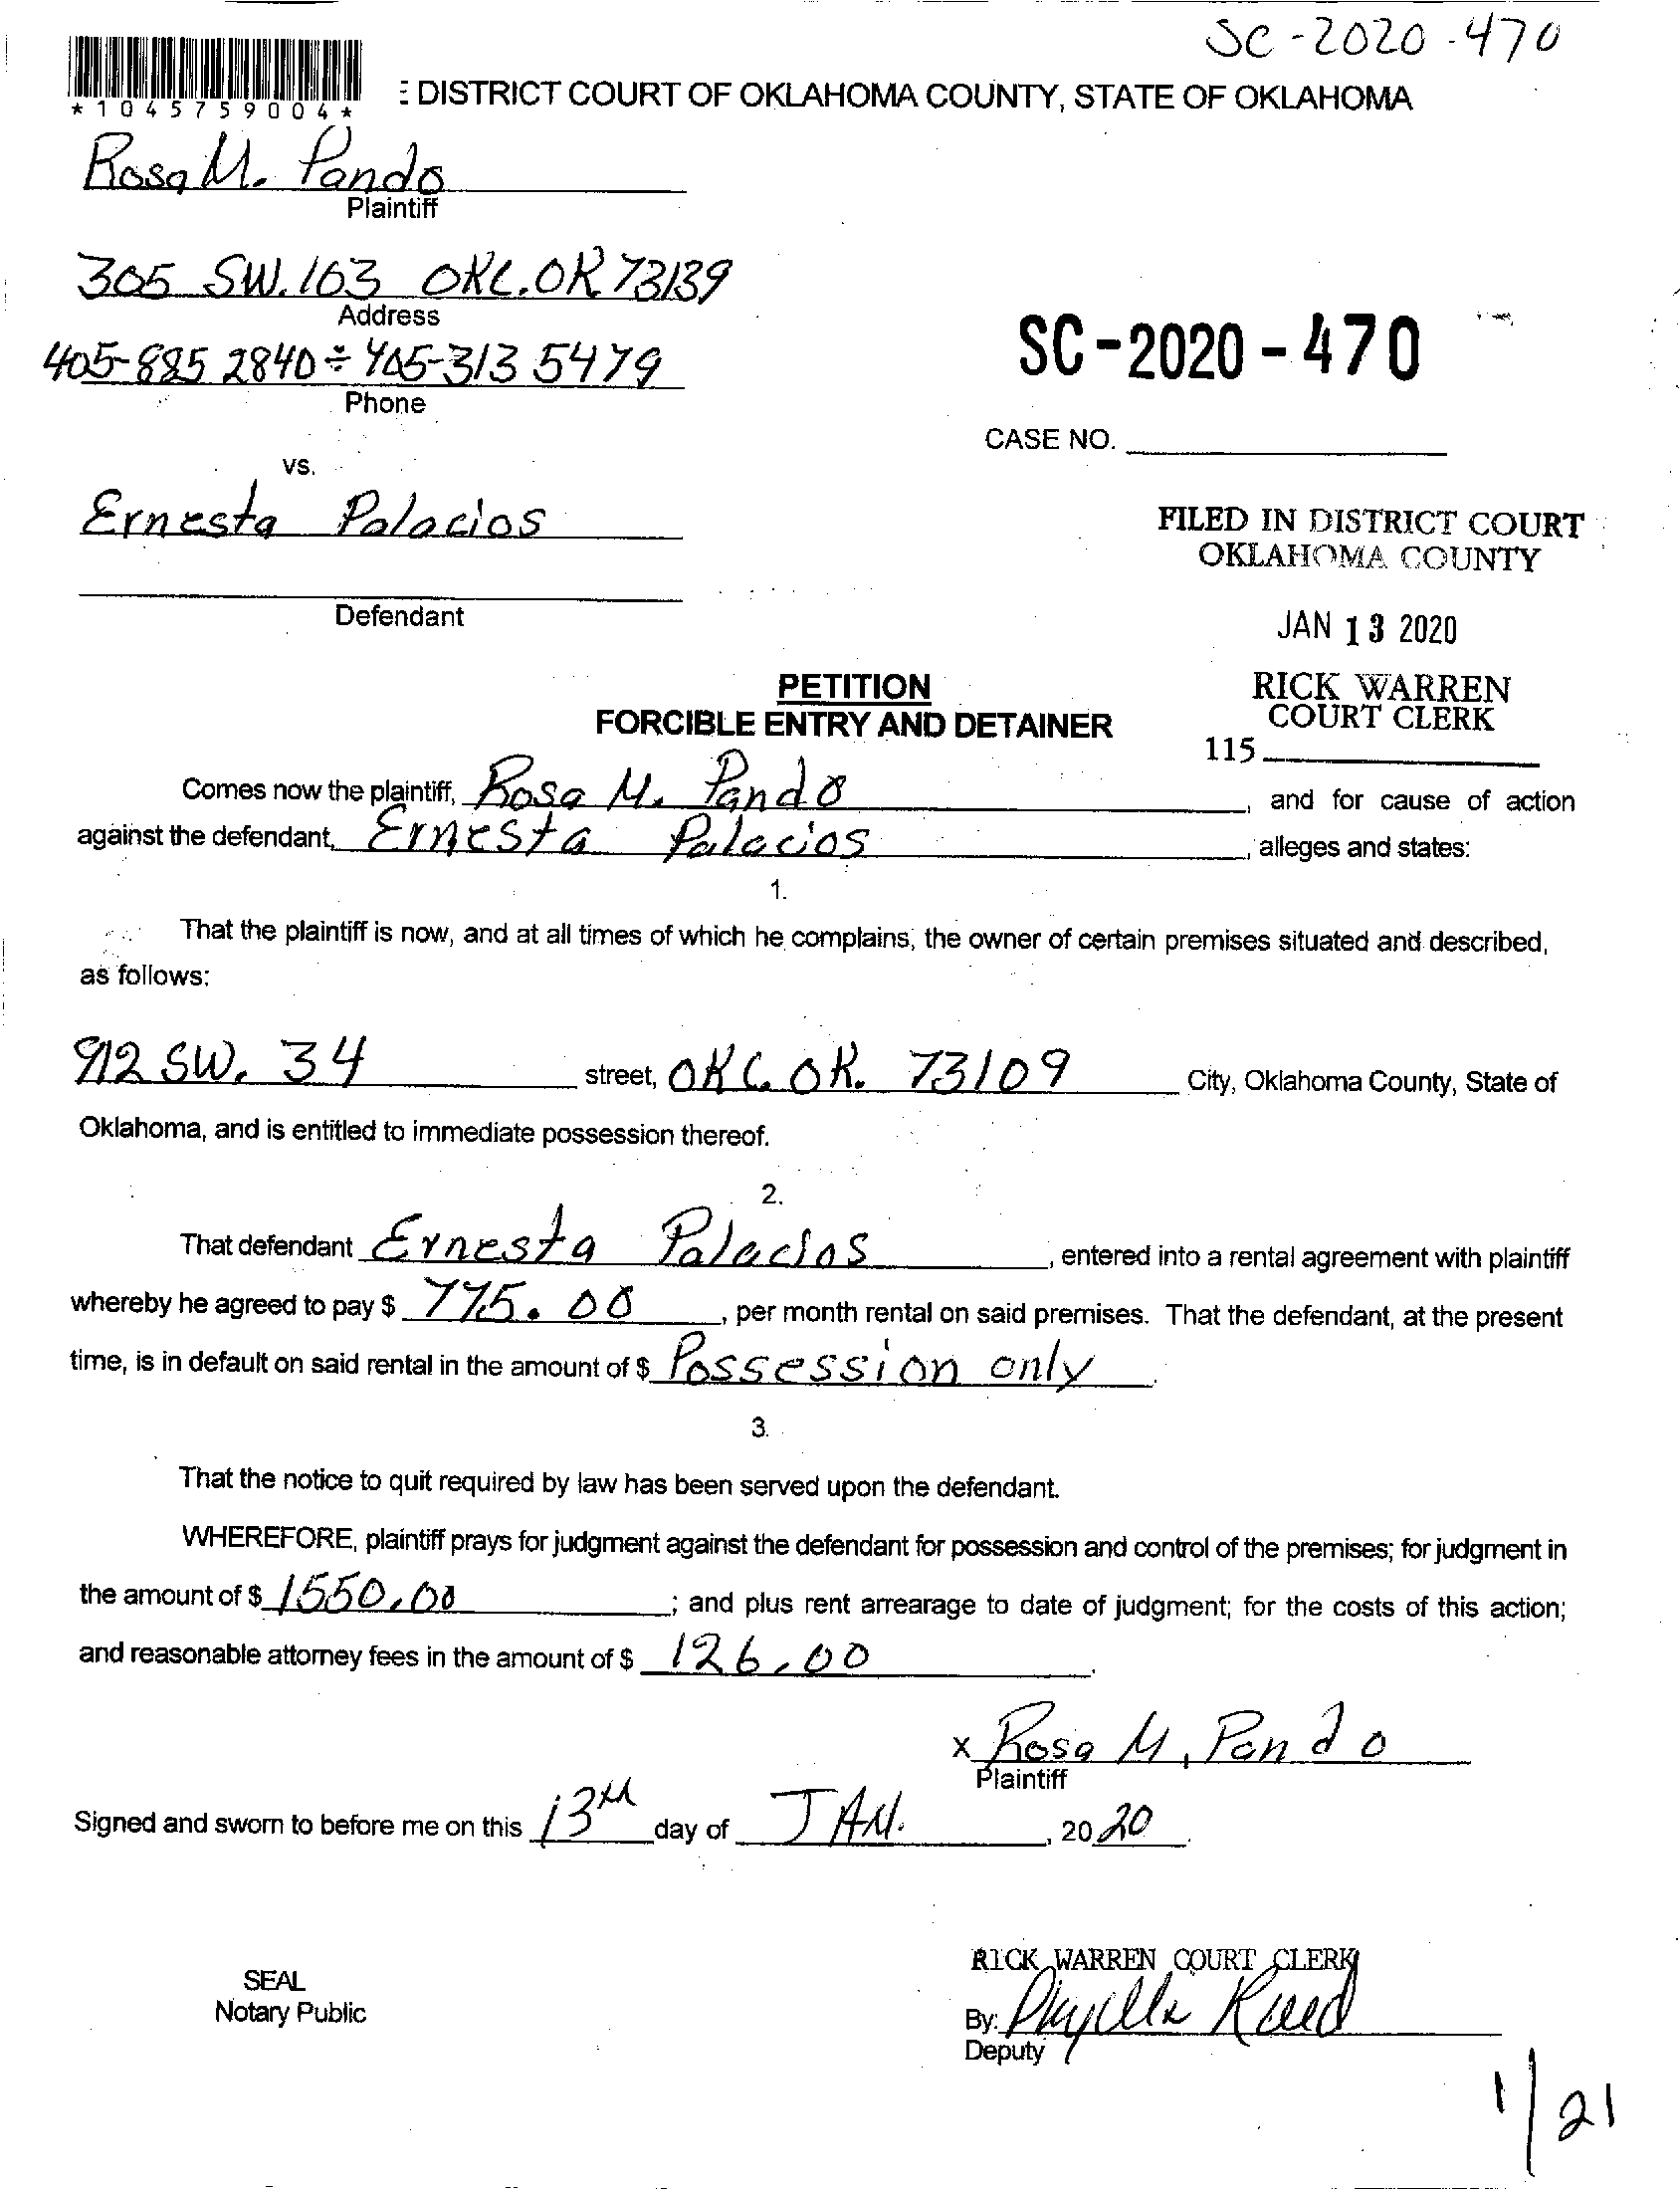 SC-2020-470
*1045759004*
DISTRICT COURT OF OKLAHOMA COUNTY, STATE OF OKLAHOMA
Rosa M. Pando
Plaintiff
305 SW. 163 OKC. OK 73139
Address
405-885 2840 ÷ 405-313 5479
Phone
SC-2020-470
CASE NO.
vs.
Ernesta Palacios
Defendant
FILED IN DISTRICT COURT
OKLAHOMA COUNTY
JAN 13 2020
RICK WARREN
COURT CLERK
115
PETITION
FORCIBLE ENTRY AND DETAINER
Comes now the plaintiff, Rosa M. Pando, and for cause of action
against the defendant, Ernesta Palacios, alleges and states:
1.
That the plaintiff is now, and at all times of which he complains, the owner of certain premises situated and described,
as follows:
912 SW. 34 street, OKC. OK. 73109 City, Oklahoma County, State of
Oklahoma, and is entitled to immediate possession thereof.
2.
That defendant Ernesta Palacios, entered into a rental agreement with plaintiff
whereby he agreed to pay $ 775.00, per month rental on said premises. That the defendant, at the present
time, is in default on said rental in the amount of $ Possession only.
3.
That the notice to quit required by law has been served upon the defendant.
WHEREFORE, plaintiff prays for judgment against the defendant for possession and control of the premises; for judgment in
the amount of $ 1550.00; and plus rent arrearage to date of judgment; for the costs of this action;
and reasonable attorney fees in the amount of $ 126.00.
x Rosa M. Pando
Plaintiff
Signed and sworn to before me on this 13th day of JAN., 2020.
SEAL
Notary Public
RICK WARREN COURT CLERK
By:
Deputy
1/21